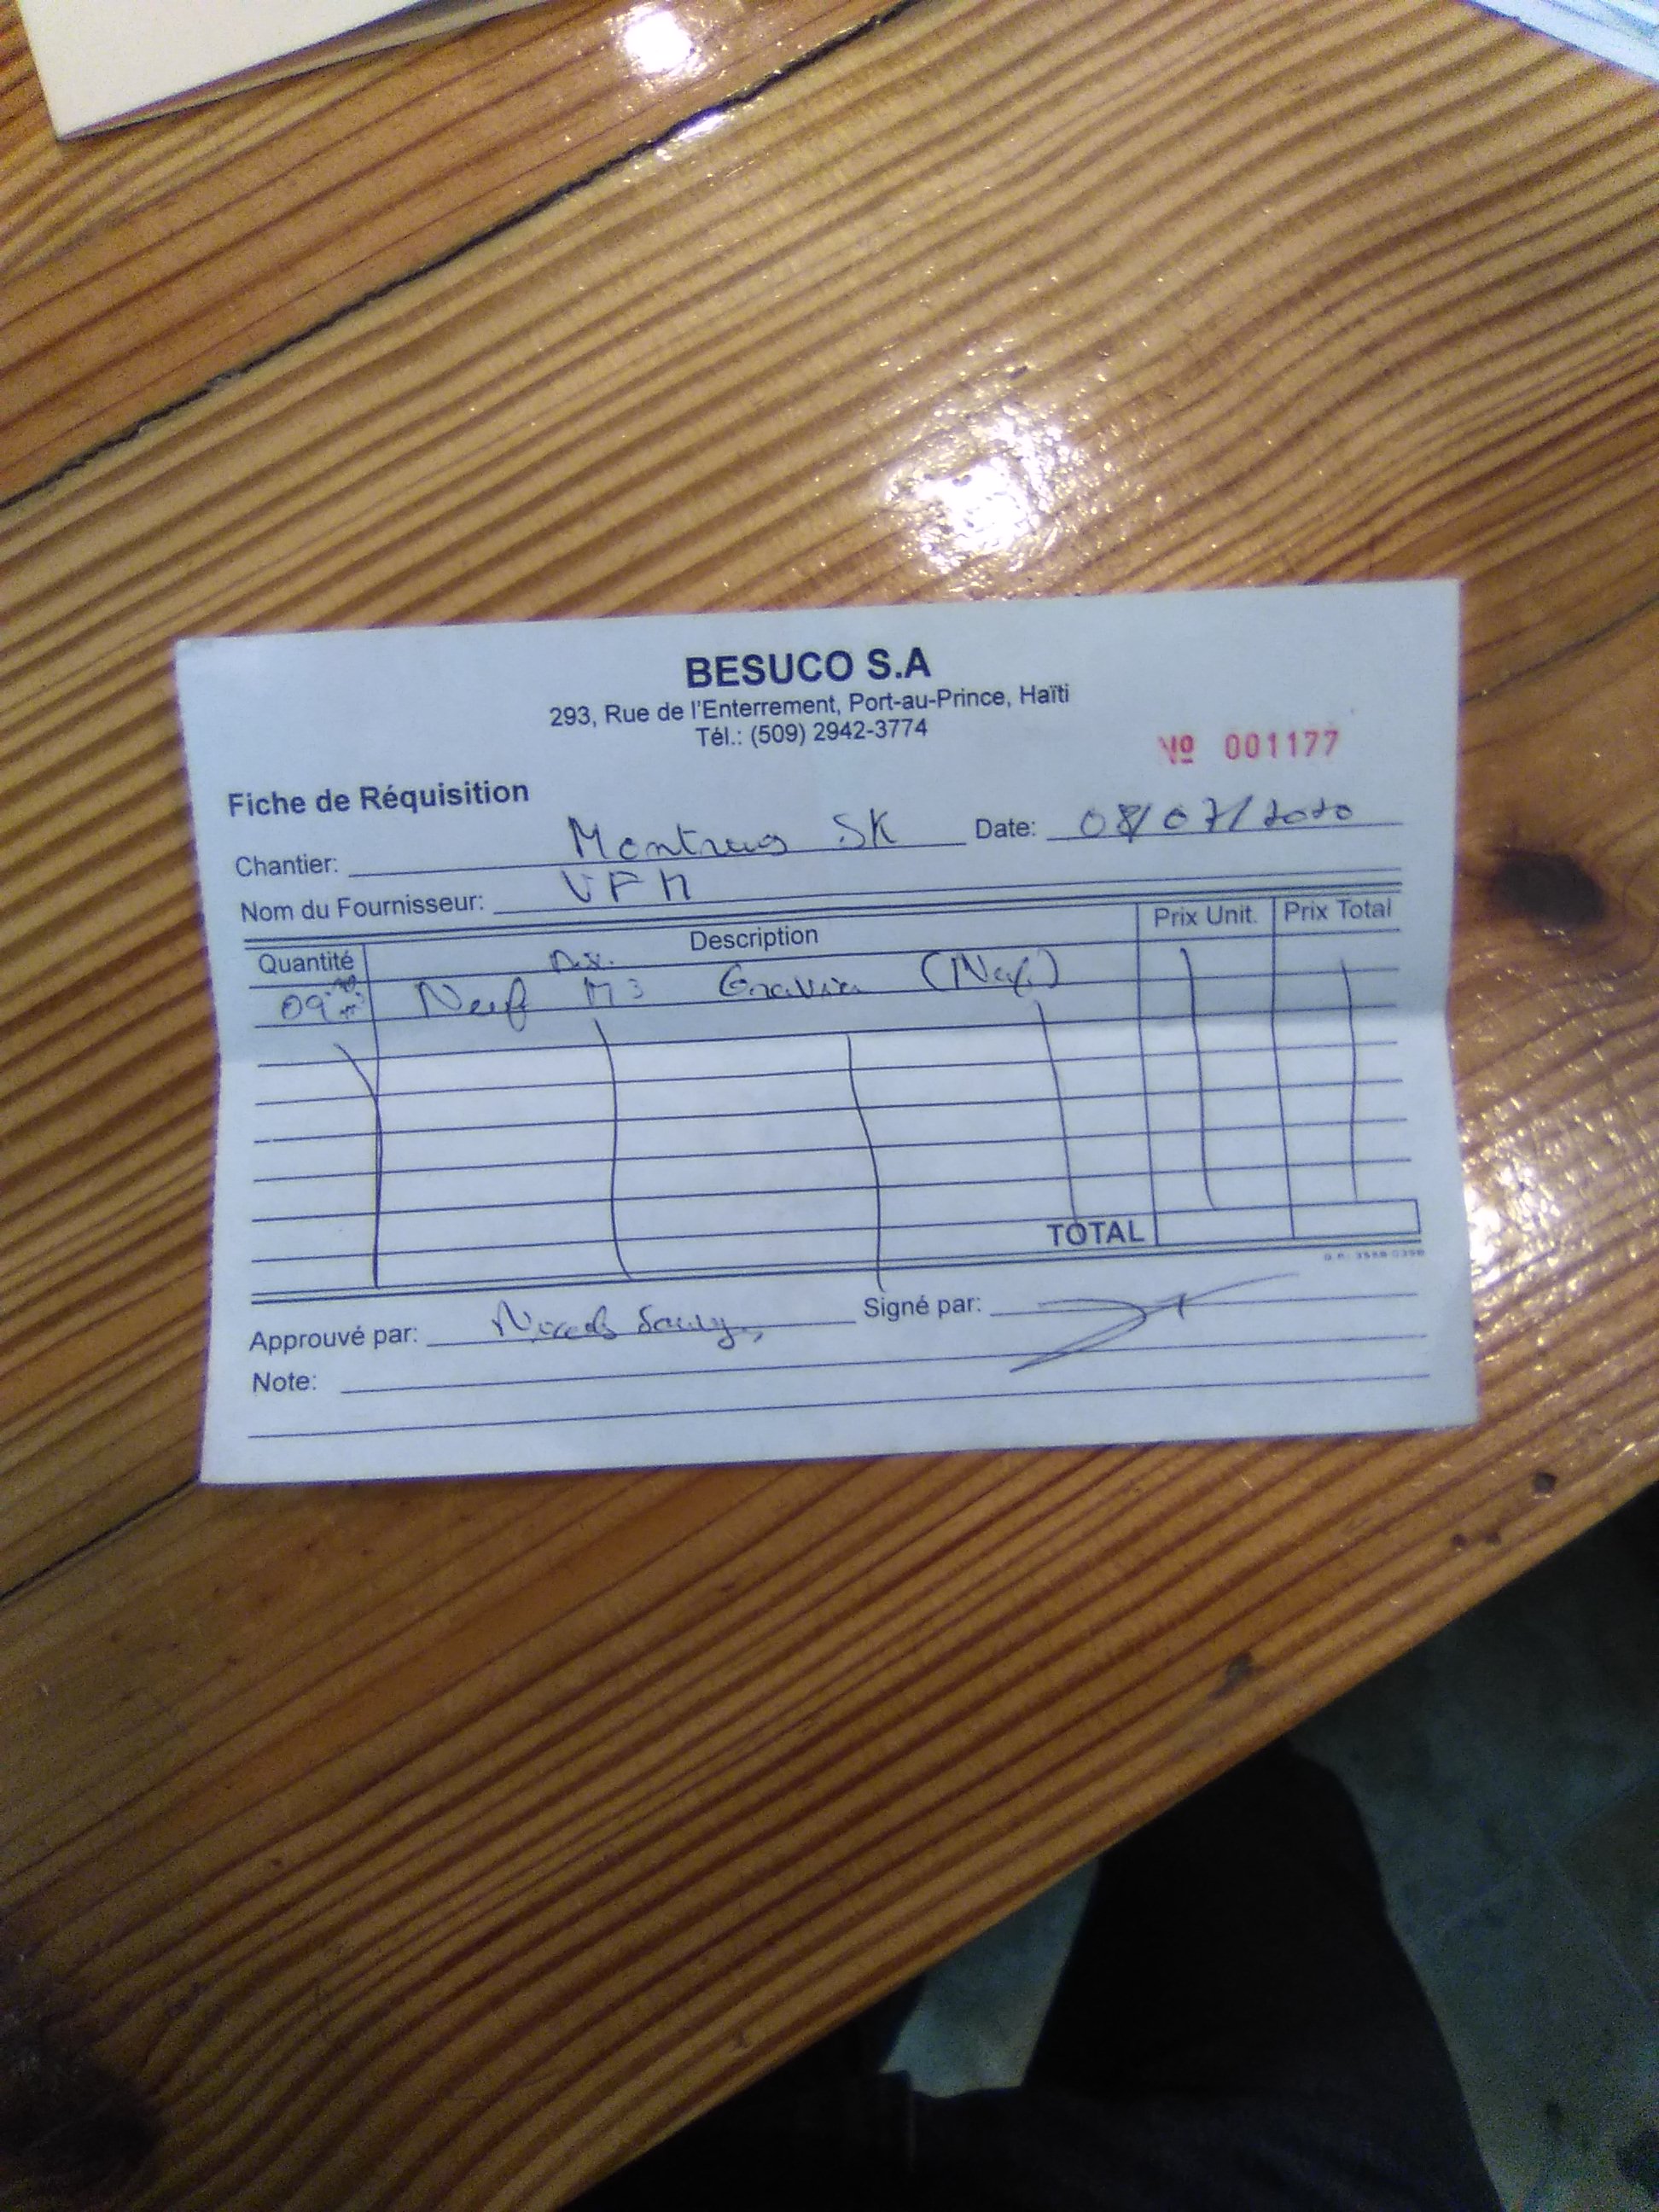 BESUCO S.A
293, Rue de l'Enterrement, Port-au-Prince, Haïti
Tél.: (509) 2942-3774
Nº 001177
Fiche de Réquisition
Chantier: Montrus SK Date: 08/07/2020
Nom du Fournisseur: VFM
Quantité Description Prix Unit. Prix Total
09 Neuf M3 Gravier
TOTAL
Approuvé par: Signé par:
Note: